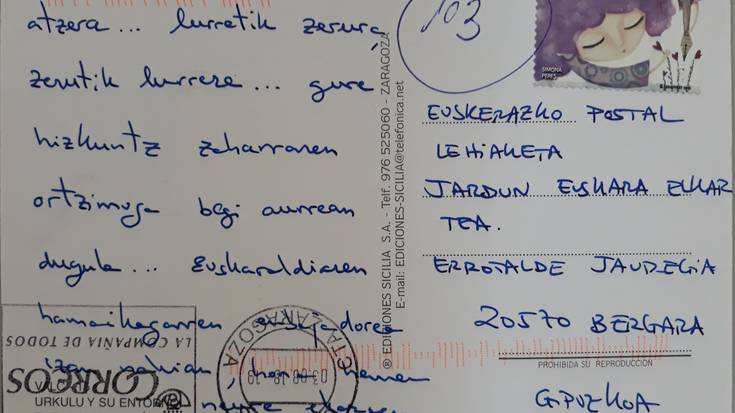 atzera... lurretik zerura,
zerutik lurrera... gure
hizkuntz zaharraren
ortzimuga begi aurrean
dugula... Euskaraldiaren
hamaikagarren
izan nahian, hemen
103
SIMONA
PERES
EUSKERAZKO POSTAL
LEHIAKETA
JARDUN EUSKARA ELKAR
TEA.
ERROTALDE JAUREGIA
20570 BERGARA
GIPUZKOA
PROHIBIDA SU REPRODUCCIÓN
® EDICIONES SICILIA S.A. - Telf. 976 525060 - ZARAGOZA
E-mail: EDICIONES-SICILIA@telefonica.net
LA COMPAÑÍA DE TODOS
CORREOS
URKULU Y SU ENTORNO
ZARAGOZA